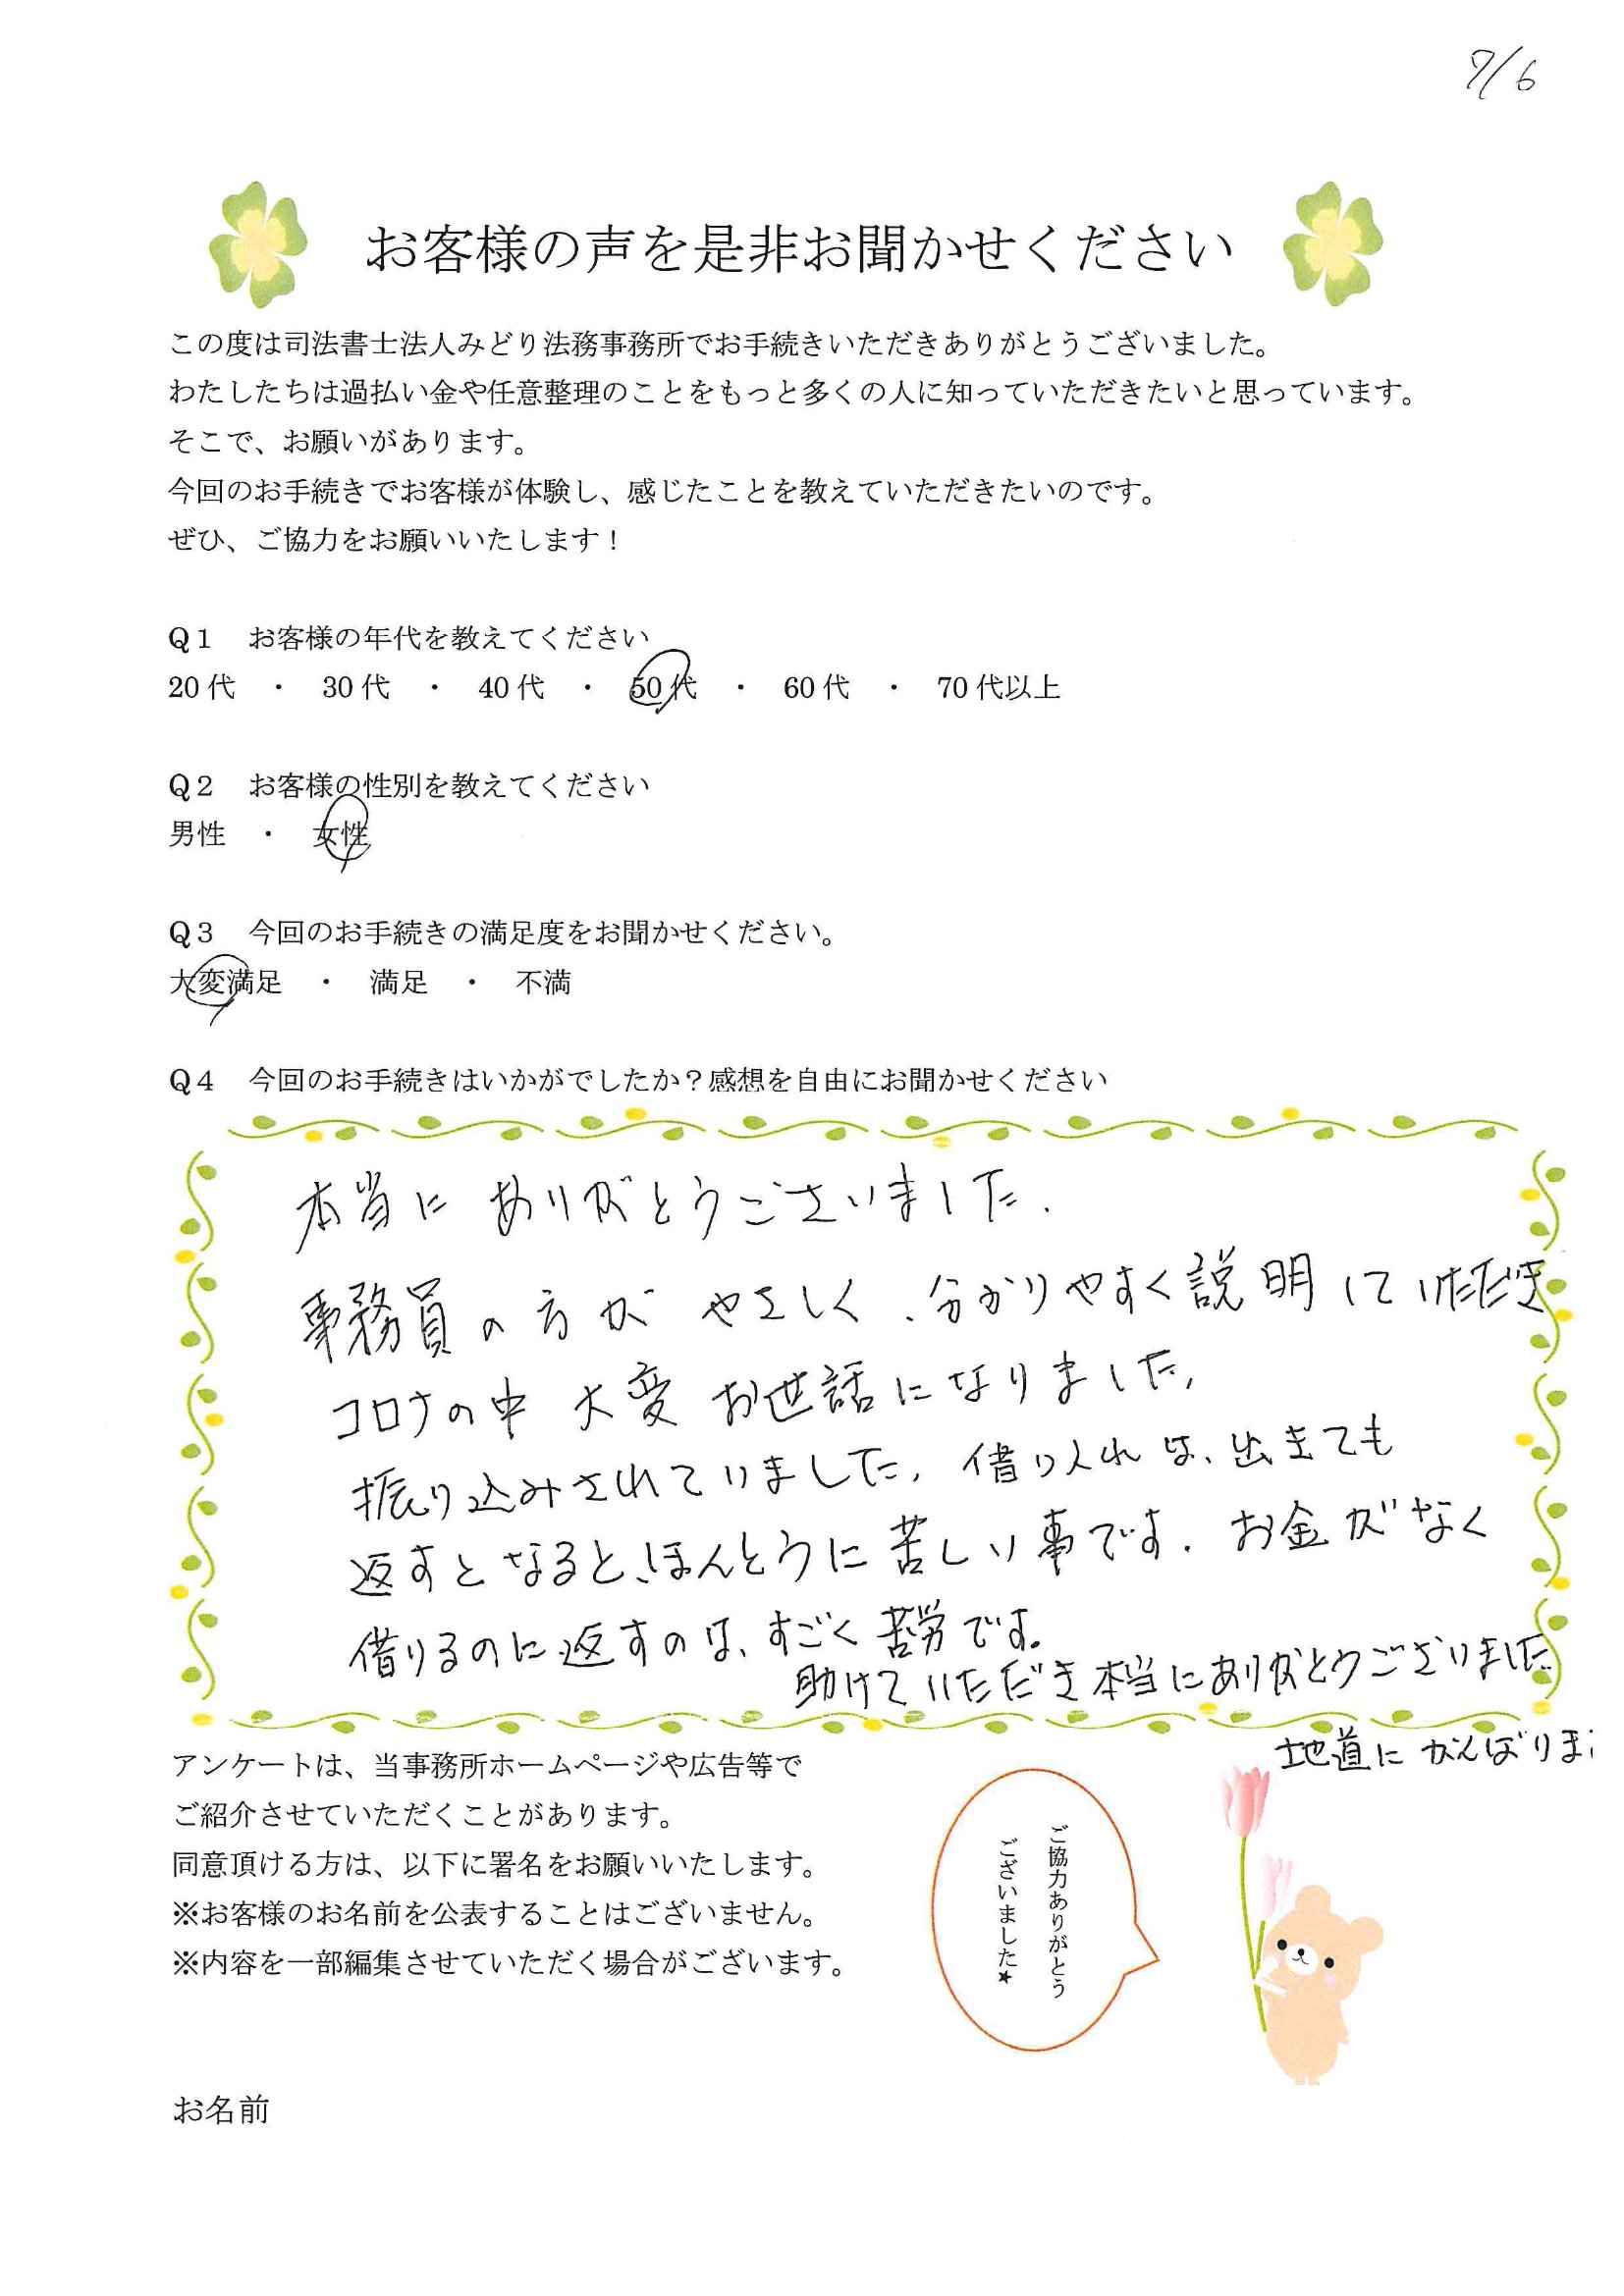 7/6
お客様の声を是非お聞かせください
この度は司法書士法人みどり法務事務所でお手続きいただきありがとうございました。
わたしたちは過払い金や任意整理のことをもっと多くの人に知っていただきたいと思っています。
そこで、お願いがあります。
今回のお手続きでお客様が体験し、感じたことを教えていただきたいのです。
ぜひ、ご協力をお願いいたします！
Q１　お客様の年代を教えてください
20代　・　30代　・　40代　・　50代　・　60代　・　70代以上
Q２　お客様の性別を教えてください
男性　・　女性
Q３　今回のお手続きの満足度をお聞かせください。
大変満足　・　満足　・　不満
Q４　今回のお手続きはいかがでしたか？感想を自由にお聞かせください
本当に ありがとうございました.
事務員の方が やさしく、分かりやすく説明していただき
コロナの中 大変 お世話になりました,
振り込みされていました, 借り入れは、出きても
返すとなると、ほんとうに苦しい事です. お金がなく
借りるのに返すのは、すごく苦労です。
助けていただき本当にありがとうございました
地道にがんばりま
アンケートは、当事務所ホームページや広告等で
ご紹介させていただくことがあります。
同意頂ける方は、以下に署名をお願いいたします。
※お客様のお名前を公表することはございません。
※内容を一部編集させていただく場合がございます。
ご協力ありがとう
ございました★
お名前